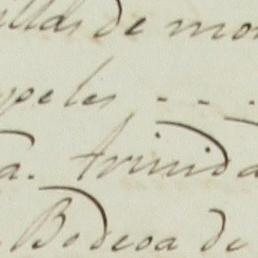 illas de mon
peles - - -
a. trinida
Bodega de